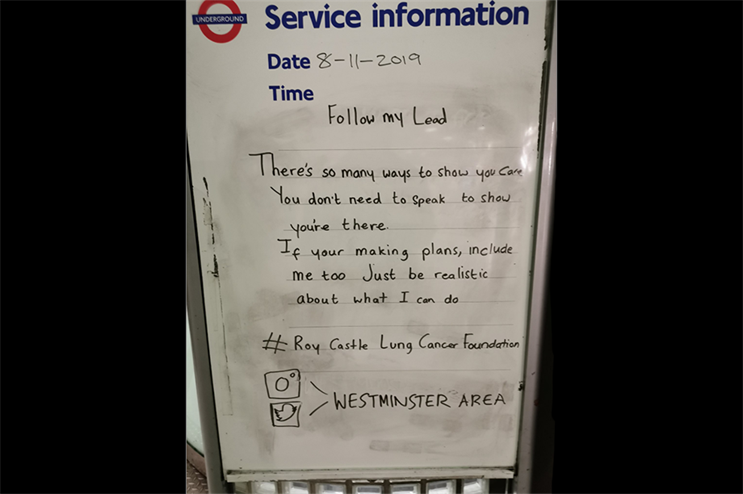 UNDERGROUND
Service information
Date 8-11-2019
Time
Follow my Lead
There's so many ways to show you Care
You don't need to speak to show
you're there.
If your making plans, include
me too Just be realistic
about what I can do
# Roy Castle Lung Cancer Foundation
WESTMINSTER AREA